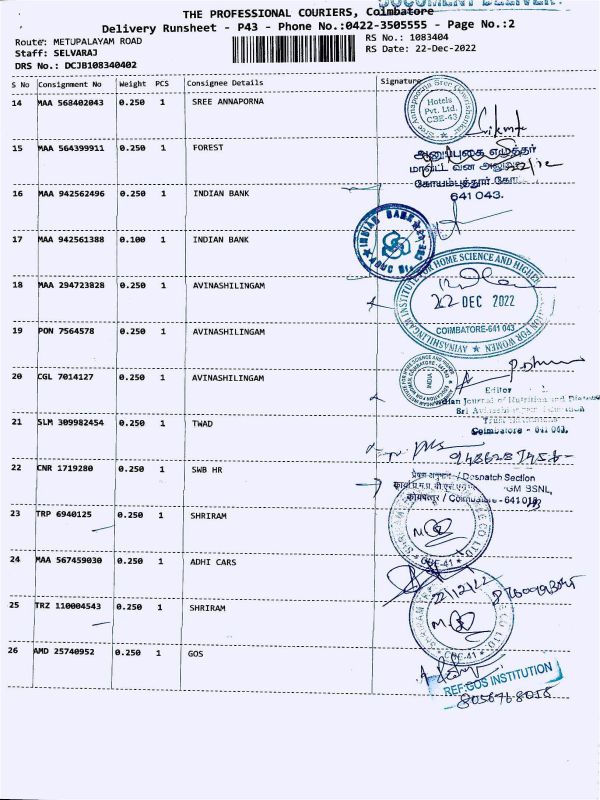 DOCUMENT DELIVER
THE PROFESSIONAL COURIERS, Coimbatore
Delivery Runsheet - P43 - Phone No.:0422-3505555 - Page No.:2
Route: METUPALAYAM ROAD
RS No.: 1083404
Staff: SELVARAJ
RS Date: 22-Dec-2022
DRS No.: DCJB108340402
S No Consignment No Weight PCS Consignee Details Signature
14 MAA 568402043 0.250 1 SREE ANNAPORNA
Hotels
Pvt. Ltd.
CBE-43
15 MAA 564399911 0.250 1 FOREST
அனுப்புகை எழுத்தர்
மாவட்ட வன
கோயம்புத்தூர்
641 043.
16 MAA 942562496 0.250 1 INDIAN BANK
INDIAN BANK
17 MAA 942561388 0.100 1 INDIAN BANK
18 MAA 294723828 0.250 1 AVINASHILINGAM
AVINASHILINGAM INSTITUTE FOR HOME SCIENCE AND HIGHER EDUCATION FOR WOMEN
22 DEC 2022
COIMBATORE-641 043
19 PON 7564578 0.250 1 AVINASHILINGAM
20 CGL 7014127 0.250 1 AVINASHILINGAM
INDIA
Editor
Indian Journal of Nutrition and Dietetics
Sri Avinashilingam Education
Trust
Coimbatore - 641 043.
21 SLM 309982454 0.250 1 TWAD
22 CNR 1719280 0.250 1 SWB HR
Despatch Section
GM BSNL,
कोयम्बत्तूर / Coimbatore - 641 043
23 TRP 6940125 0.250 1 SHRIRAM
CBE-41
24 MAA 567459030 0.250 1 ADHI CARS
22/12/22
25 TRZ 110004543 0.250 1 SHRIRAM
CBE-41
26 AMD 25740952 0.250 1 GOS
REF:GOS INSTITUTION